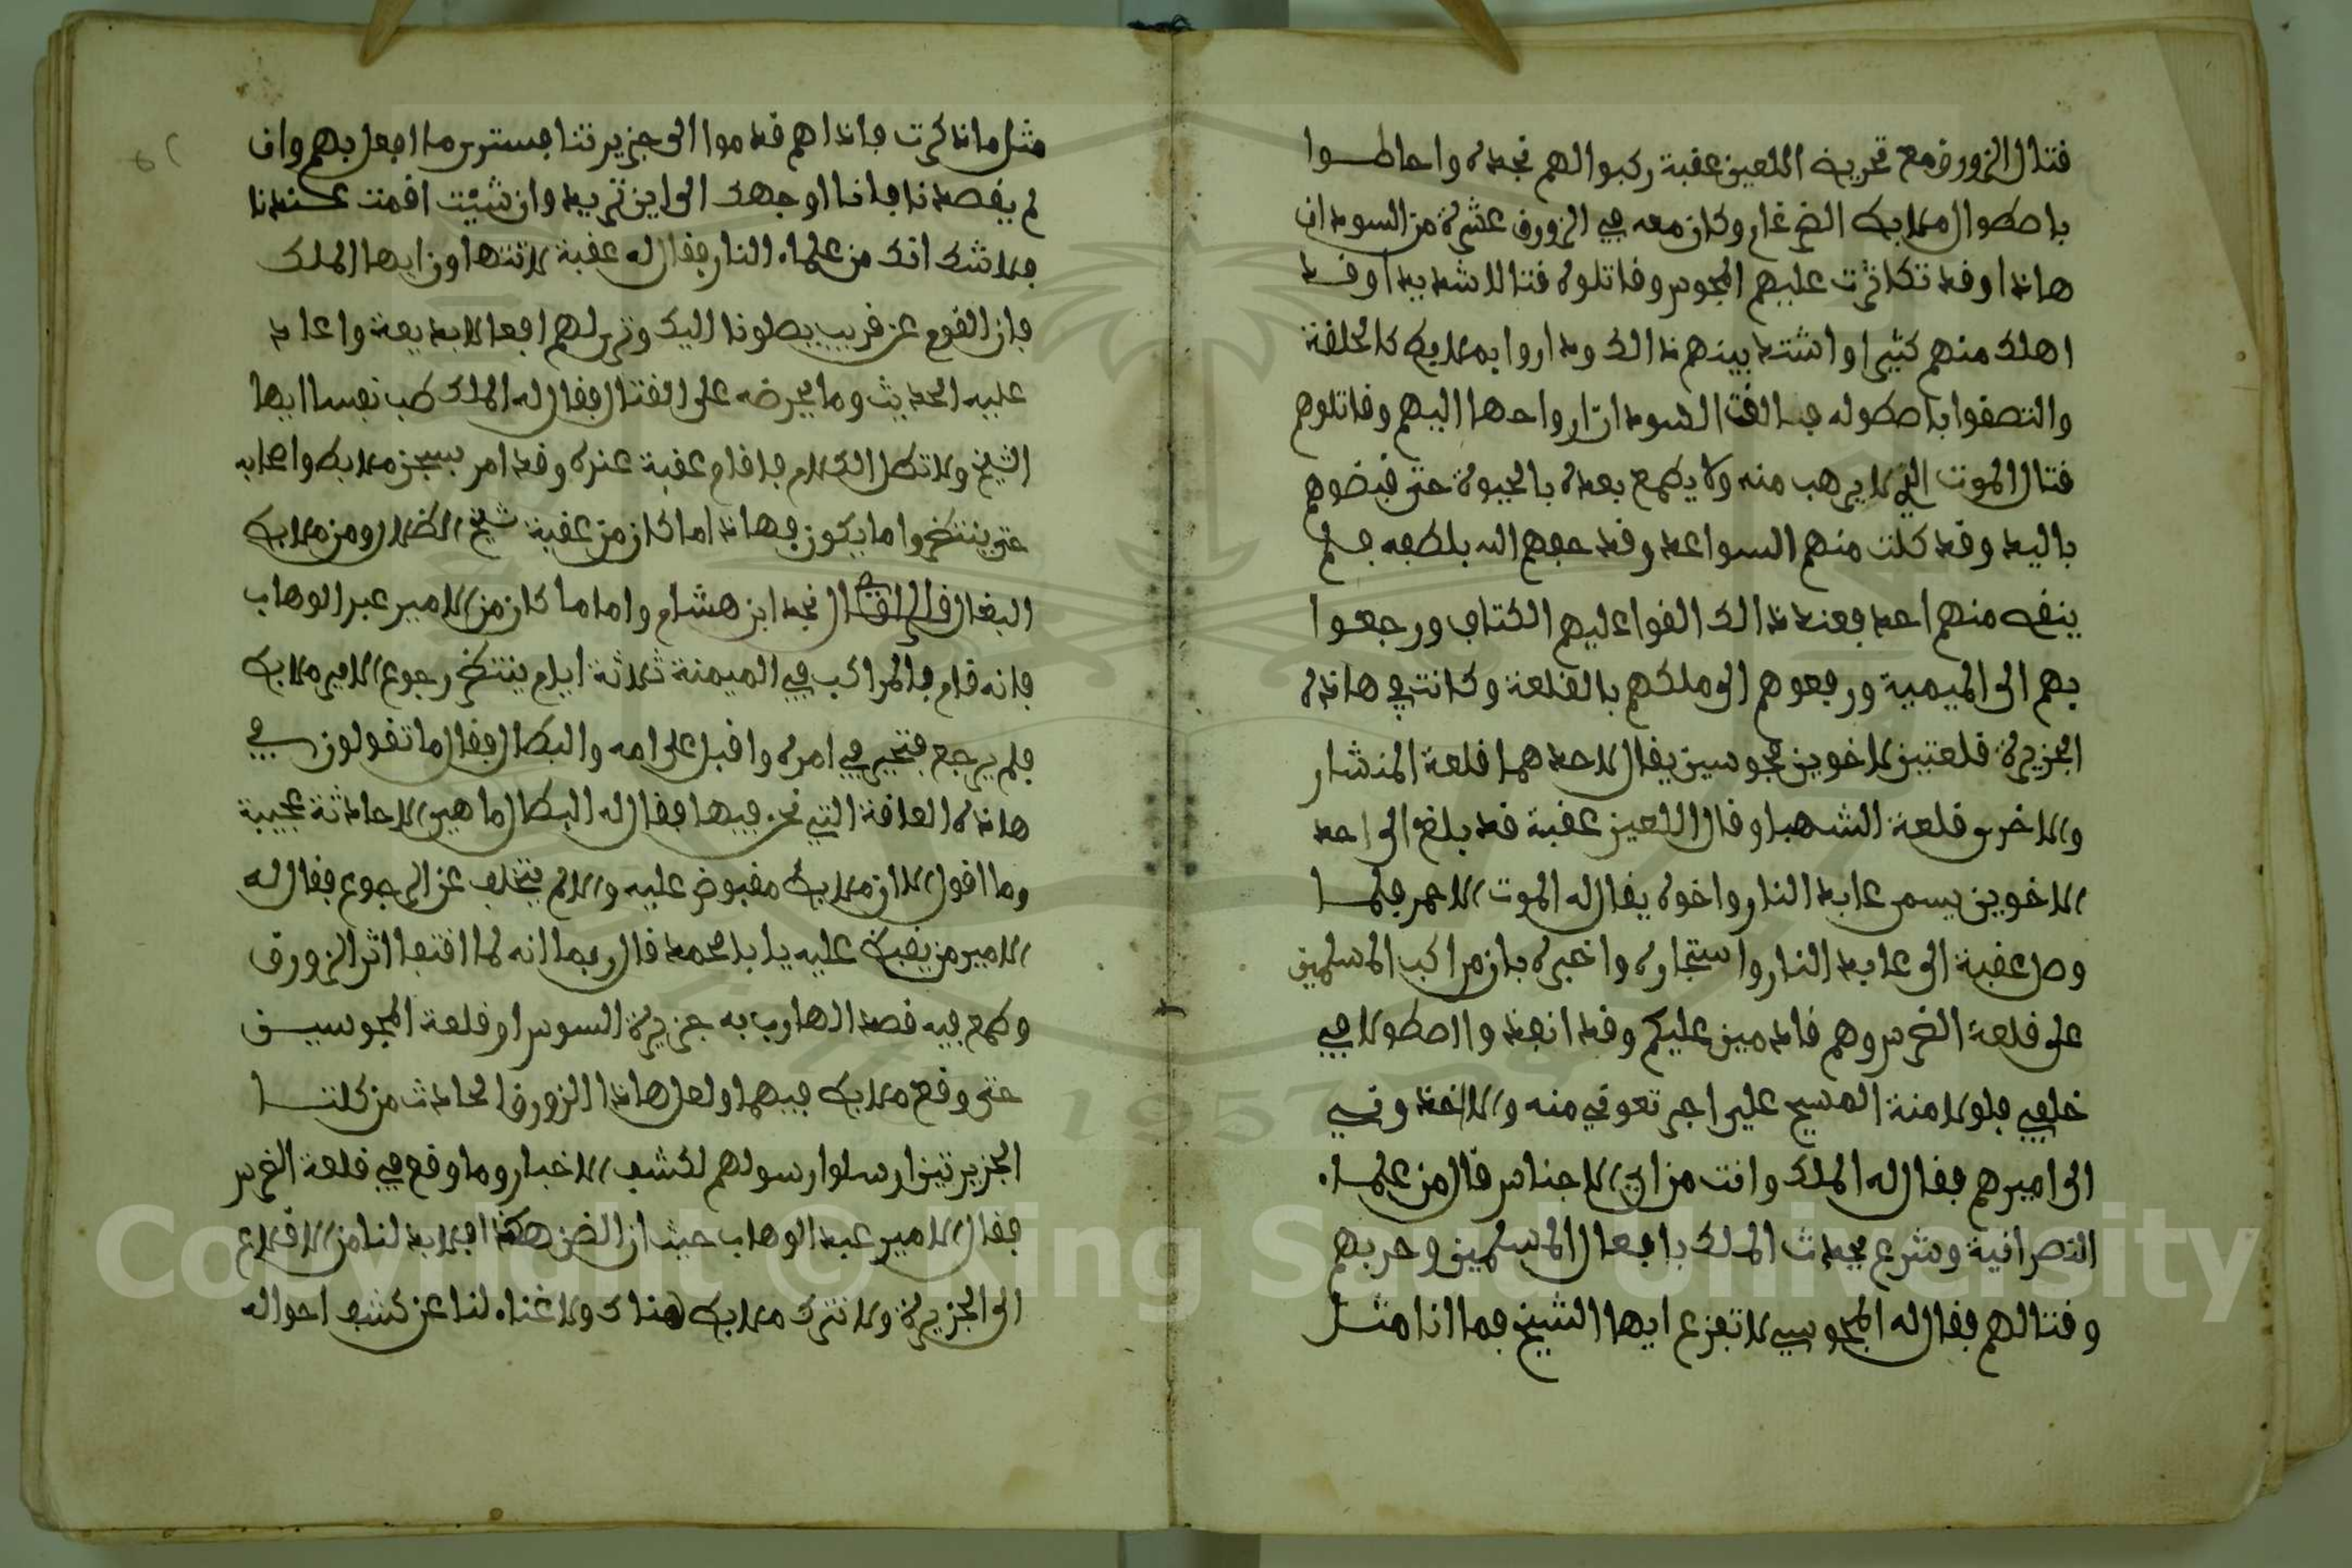 قتال الزورق مع تحريض اللعين عقبة ركبوا لهم نجدة واحاطوا
باصطول ملابك الضرغام وكان معه في الزورق عشرة من السودان
هاذا وقد تكاثرت عليهم المجوس وقاتلوه قتالا شديدا وقد
اهلك منهم كثيرا واشتد بينهم ذالك وداروا بملابك كالحلقة
والتصقوا باصطوله فالقت السودان ارواحها اليهم وقاتلوهم
قتال الموت الذي لا يرهب منه ولا يطمع بعده بالحيوة حتى قبضوهم
باليد وقد كلت منهم السواعد وقد حفهم الله بلطفه فلم
ينفد منهم احد فعند ذالك القوا عليهم الكتاف ورجعوا
بهم الى الميمية ورفعوهم الى ملكهم بالقلعة وكانت في هاذه
الجزيرة قلعتين لاخوين مجوسين يقال لاحدهما قلعة المنشار
والاخرى قلعة الشهبا وقال اللعين عقبة قد بلغ الى احد
الاخوين يسمى عابد النار واخوه يقال له الموت الاحمر فلما
وصل عقبة الى عابد النار واستجاره واخبره بان مراكب المسلمين
على قلعة الضرس وهم قادمين عليكم وقد انفذوا اصطولا في
خلفي فلولا منة المسيح علي اجرتموني منه والا اخذوني
الى اميرهم فقال له الملك وانت من اي الاجناس قال من علماء
النصرانية وشرع يحدث الملك بافعال المسلمين وحربهم
وقتالهم فقال له المجوسي لا تفزع ايها الشيخ فما انا مثل
مثل ما ذكرت فاذا هم قدموا الى جزيرتنا فسترى ما افعل بهم وان
لم يقصدنا فانا اوجهك الى اين تريد وان شئت اقمت عندنا
فلا شك انك من علماء النار فقال له عقبة لا تتهاون ايها الملك
فان القوم عن قريب يصلونا اليك وترى لهم افعالا بديعة واعاد
عليه الحديث وما يحرضه على القتال فقال له الملك طب نفسا ايها
الشيخ ولا تطل الكلام فاقام عقبة عنده وقد امر بسجن ملابك واصحابه
حتى ينتظر وما يكون فهاذا ما كان من عقبة شيخ الظلال ومن ملابك
البغال قال نجد ابن هشام واما ما كان من الامير عبد الوهاب
فانه قام فالمراكب في الميمنة ثلاثة ايام ينتظر رجوع الامير ملابك
فلم يرجع فتحير في امره واقبل على امه والبطال فقال ما تقولون في
هاذه العاقة التي نحن فيها فقال له البطال ما هي الا حادثة عجيبة
وما اقول الا ان ملابك مقبوض عليه والا لم يتخلف عن الرجوع فقال له
الامير من يقبض عليه يا با محمد قال ربما انه لما اقتفا اثر الزورق
وطمع فيه قصد الهارب به جزيرة السوس او قلعة المجوسيين
حتى وقع ملابك فيهما ولعل هاذا الزورق الحادث من كلتا
الجزيرتين ارسلوا رسولهم لكشف الاخبار وما وقع في قلعة الضرس
فقال الامير عبد الوهاب حيث ان الظن هكذا فلابد لنا من الاقلاع
الى الجزيرة ولا نترك ملابك هناك ولا غناء لنا عن كشف احواله